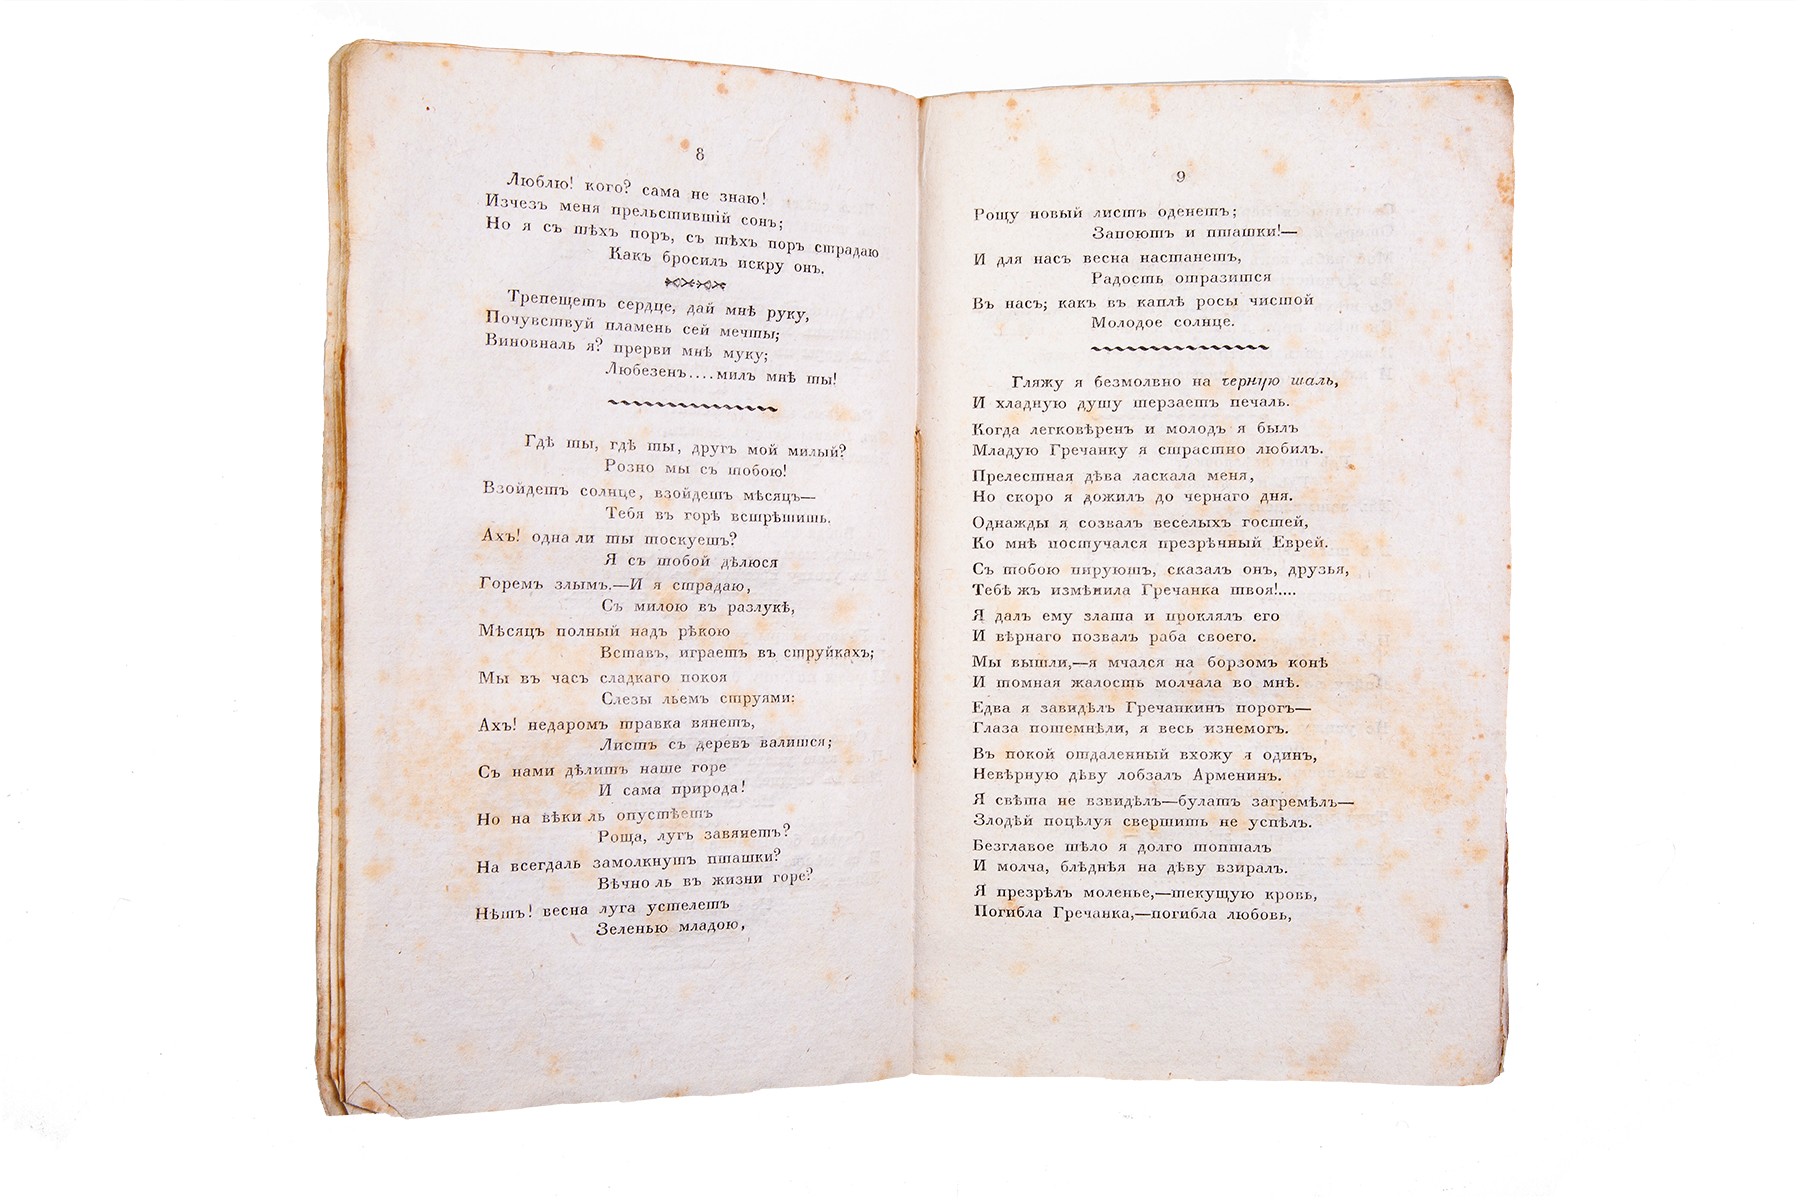 8
Люблю! кого? сама не знаю!
Изчезъ меня прельстившій сонъ;
Но я съ тѣхъ поръ, съ тѣхъ поръ страдаю
Какъ бросилъ искру онъ.
Трепещетъ сердце, дай мнѣ руку,
Почувствуй пламень сей мечты;
Виновналь я? прерви мнѣ муку;
Любезенъ....милъ мнѣ ты!
Гдѣ ты, гдѣ ты, другъ мой милый?
Розно мы съ тобою!
Взойдетъ солнце, взойдетъ мѣсяцъ—
Тебя въ горѣ встрѣтитъ.
Ахъ! одна ли ты тоскуешъ?
Я съ тобой дѣлюся
Горемъ злымъ.—И я страдаю,
Съ милою въ разлукѣ,
Мѣсяцъ полный надъ рѣкою
Вставъ, играетъ въ струйкахъ;
Мы въ часъ сладкаго покоя
Слезы льемъ струями:
Ахъ! недаромъ травка вянетъ,
Листъ съ деревъ валится;
Съ нами дѣлитъ наше горе
И сама природа!
Но на вѣки ль опустѣетъ
Роща, лугъ завянетъ?
На всегдаль замолкнутъ пташки?
Вѣчно ль въ жизни горе?
Нѣтъ! весна луга устелетъ
Зеленью младою,
9
Рощу новый листъ оденетъ;
Запоютъ и пташки!—
И для насъ весна настанетъ,
Радость отразится
Въ насъ; какъ въ каплѣ росы чистой
Молодое солнце.
Гляжу я безмолвно на черную шаль,
И хладную душу терзаетъ печаль.
Когда легковѣренъ и молодъ я былъ
Младую Гречанку я страстно любилъ.
Прелестная дѣва ласкала меня,
Но скоро я дожилъ до чернаго дня.
Однажды я созвалъ веселыхъ гостей,
Ко мнѣ постучался презрѣнный Еврей.
Съ тобою пируютъ, сказалъ онъ, друзья,
Тебѣ жъ измѣнила Гречанка твоя!....
Я далъ ему злата и проклялъ его
И вѣрнаго позвалъ раба своего.
Мы вышли,—я мчался на борзомъ конѣ
И томная жалость молчала во мнѣ.
Едва я завидѣлъ Гречанкинъ порогъ—
Глаза потемнѣли, я весь изнемогъ.
Въ покой отдаленный вхожу я одинъ,
Невѣрную дѣву лобзалъ Арменинъ.
Я свѣта не взвидѣлъ—булатъ загремѣлъ—
Злодѣй поцѣлуя свершить не успѣлъ.
Безглавое тѣло я долго топталъ
И молча, блѣднѣя на дѣву взиралъ.
Я презрѣлъ моленье,—текущую кровь,
Погибла Гречанка,—погибла любовь,